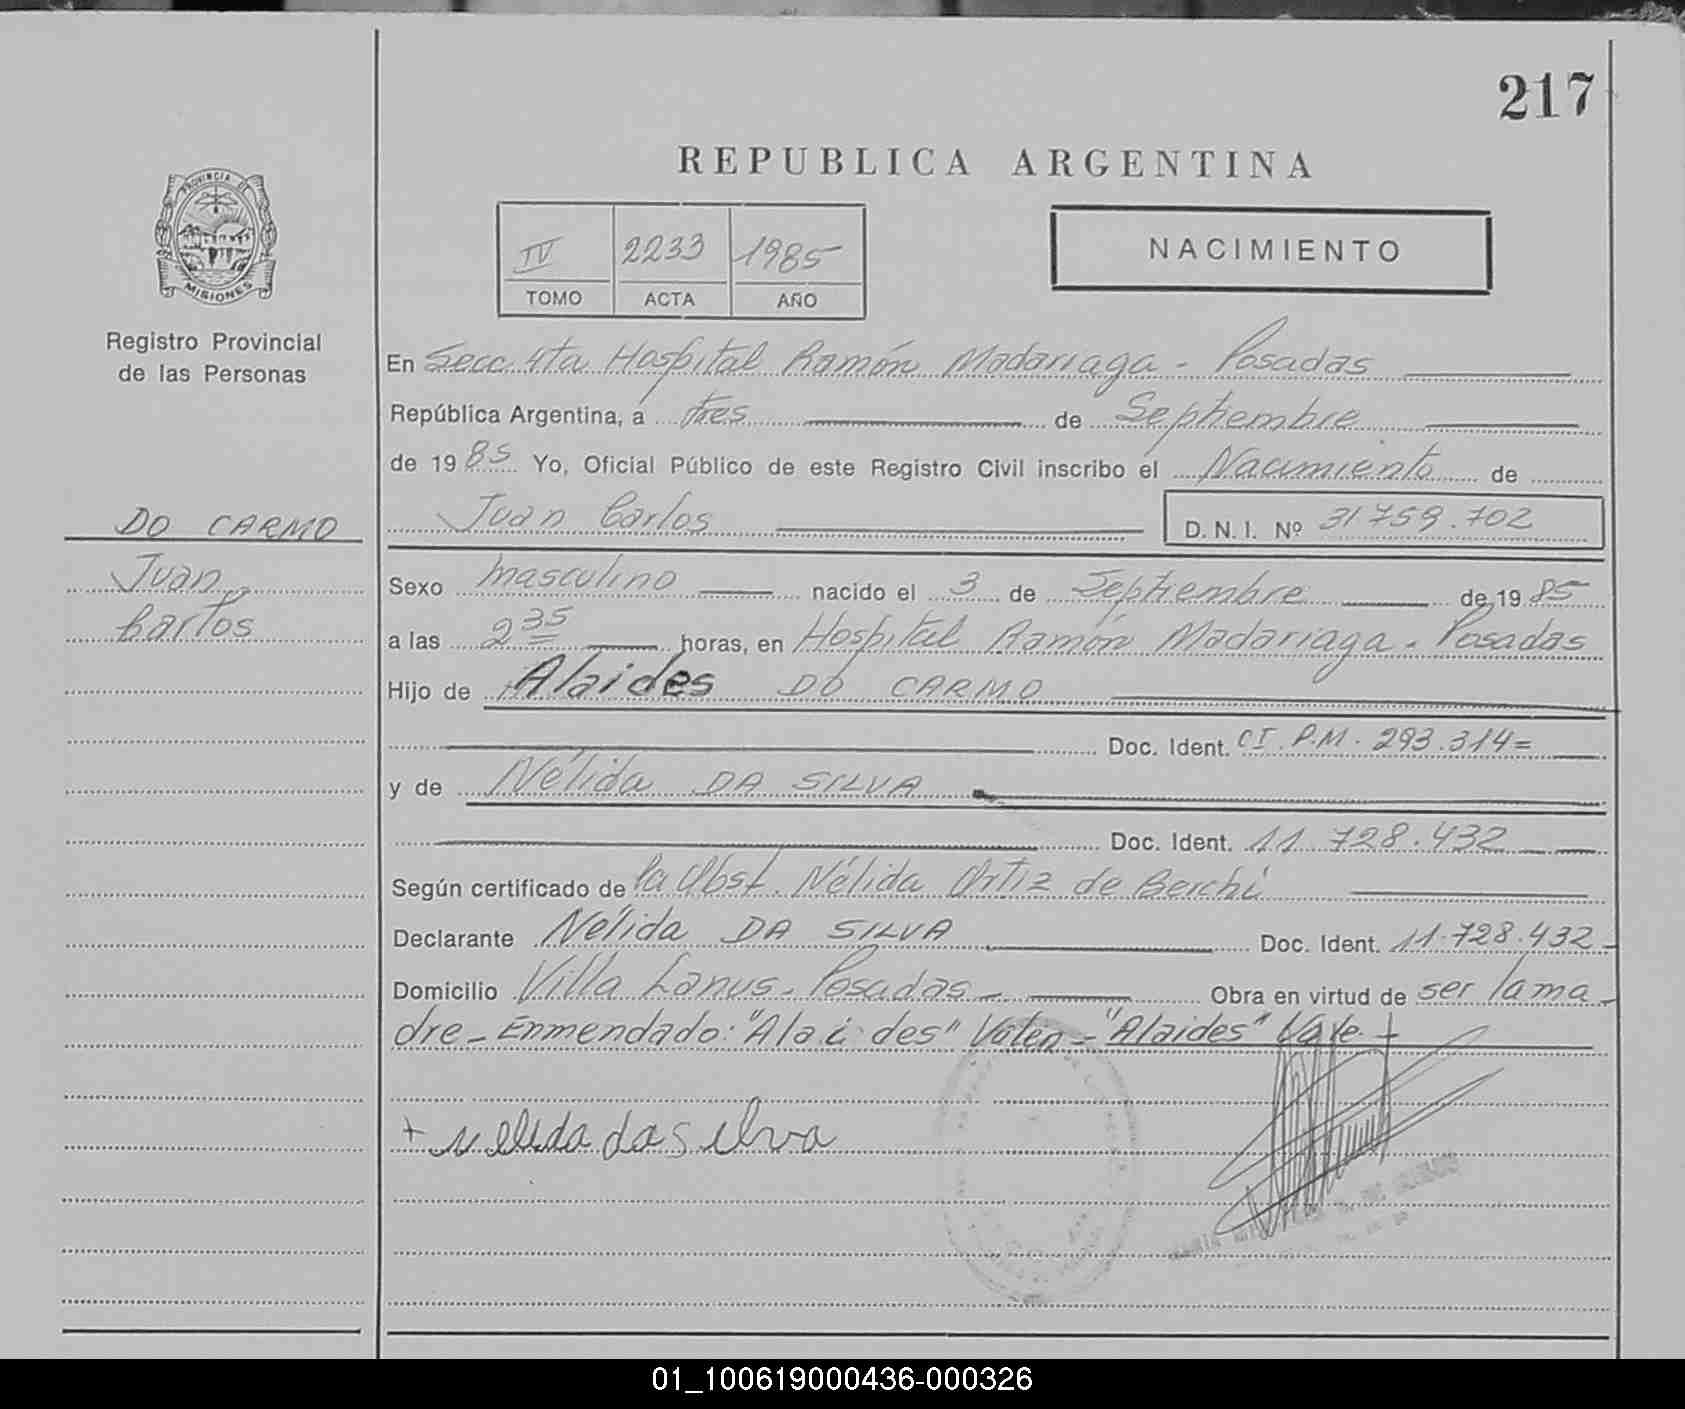 217
REPUBLICA ARGENTINA
PROVINCIA DE
MISIONES
Registro Provincial
de las Personas
IV 2233 1985
TOMO ACTA AÑO
NACIMIENTO
En Secc. 4ta Hospital Ramón Madariaga - Posadas
República Argentina, a tres de Septiembre
de 1985 Yo, Oficial Público de este Registro Civil inscribo el Nacimiento de
Juan Carlos D. N. I. Nº 31759.702
DO CARMO
Juan
Carlos
Sexo masculino nacido el 3 de Septiembre de 1985
a las 2 35 horas, en Hospital Ramón Madariaga - Posadas
Hijo de Alaides DO CARMO
Doc. Ident. CI. P.M. 293.314=
y de Nélida DA SILVA
Doc. Ident. 11.728.432
Según certificado de la Obst. Nélida Ortiz de Berchi
Declarante Nélida DA SILVA Doc. Ident. 11.728.432
Domicilio Villa Lanus - Posadas - Obra en virtud de ser la ma
dre - Enmendado: "Alai des" Valen - "Alaides" Vale -
+ nelida da Silva
01_100619000436-000326